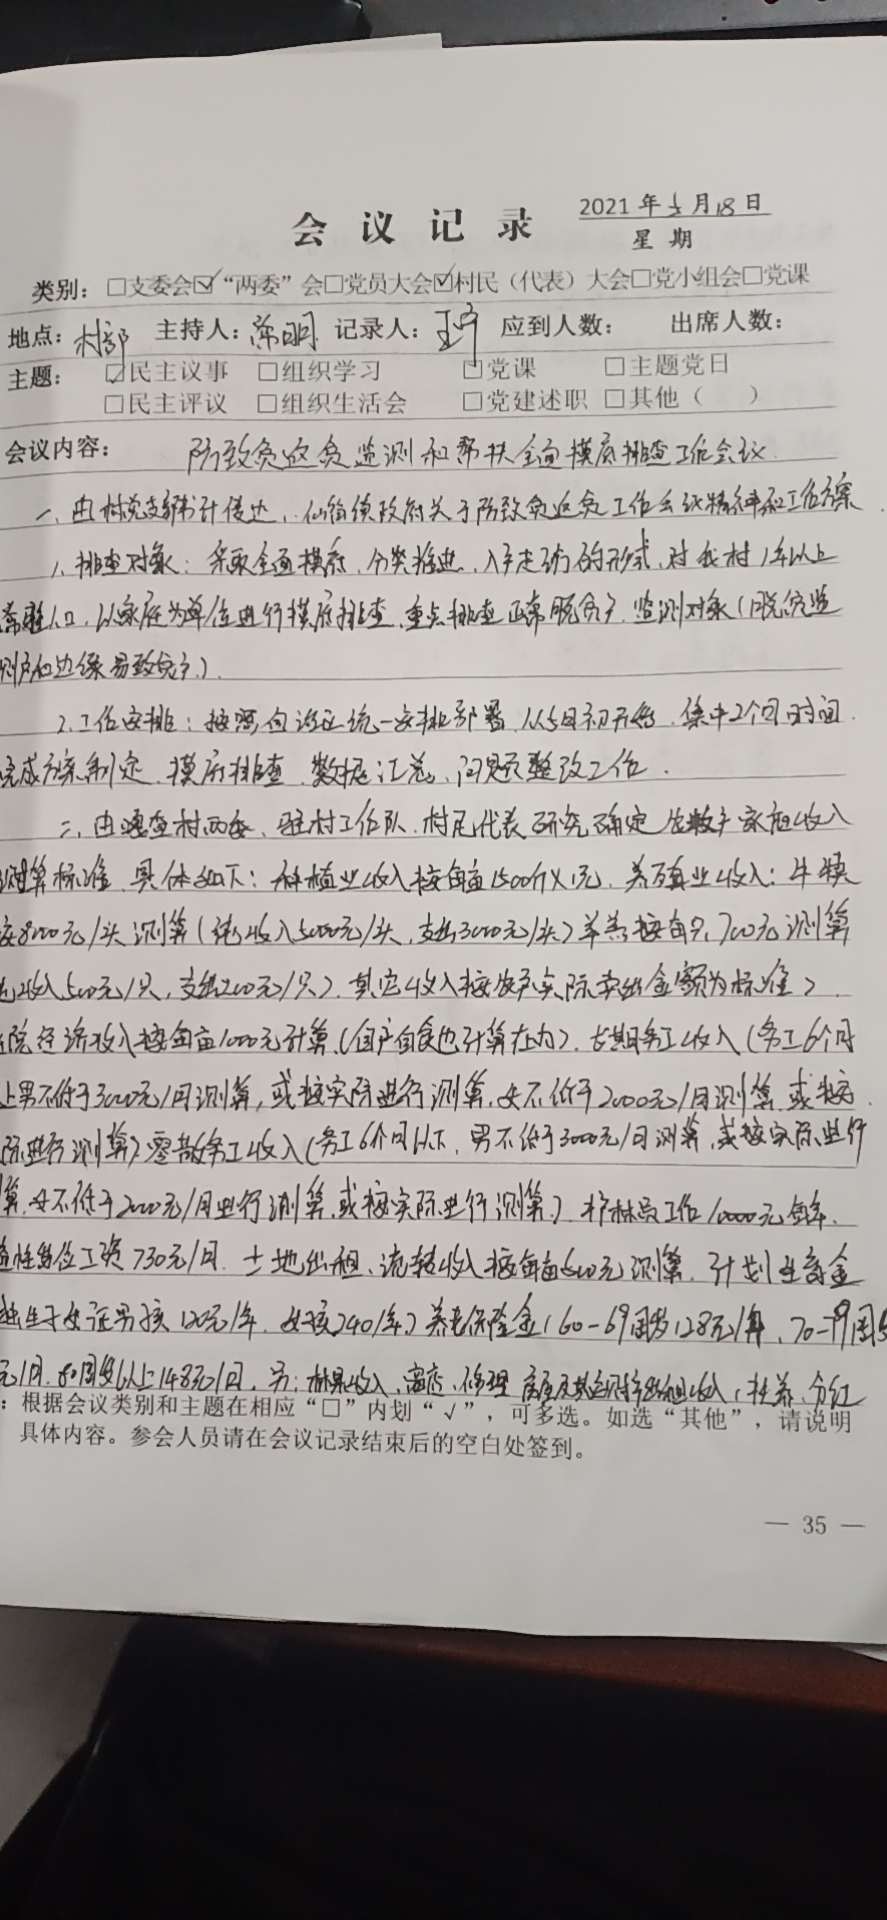 会 议 记 录
2021 年 5 月 18 日
星 期
类别：□支委会☑“两委”会□党员大会☑村民（代表）大会□党小组会□党课
地点：村部 主持人：明 记录人：王 应到人数： 出席人数：
主题：☑民主议事 □组织学习 □党课 □主题党日
□民主评议 □组织生活会 □党建述职 □其他（ ）
会议内容： 防致贫返贫监测和帮扶全面摸底排查工作会议
一、由村党支部书计传达，镇政府关于防致贫返贫工作会议精神和工作方案
1、排查对象：采取全面摸底，分类推进，入户走访的形式，对我村1年以上
常住人口，以家庭为单位进行摸底排查，重点排查正常脱贫户，监测对象（脱贫监
测户和边缘易致贫户）
2、工作安排：按照统一安排部署，从5月初开始，集中2个月时间
完成方案制定，摸底排查，数据汇总，问题整改工作．
二、由村两委、驻村工作队、村民代表研究确定农户家庭收入
测算标准，具体如下：种植业收入按每亩1500斤X1元，养殖业收入：牛犊
按8000元/头测算（纯收入5000元/头，支出3000元/头）羊羔按每只700元测算
收入500元/只，支出200元/只），其它收入按农户实际卖出金额为标准）
院经济收入按每亩1000元计算（自产自食也计算在内），长期务工收入（务工6个月
上男不低于3000元/月测算，或按实际进行测算，女不低于2000元/月测算，或按
际进行测算）零散务工收入（务工6个月以下，男不低于3000元/月测算，或按实际进行
算，女不低于2000元/月进行测算，或按实际进行测算）护林员工作10000元每年，
益性岗位工资730元/月，土地出租、流转收入按每亩600元测算，计划生育金
独生子女证男孩120元/年，女孩240/年）养老保险金（60-69周岁128元/月，70-79周岁
元/月，80周岁以上148元/月，另：林果收入、商店、修理、房屋及其它财产出租收入，扶养、分红
：根据会议类别和主题在相应“□”内划“√”，可多选。如选“其他”，请说明
具体内容。参会人员请在会议记录结束后的空白处签到。
— 35 —